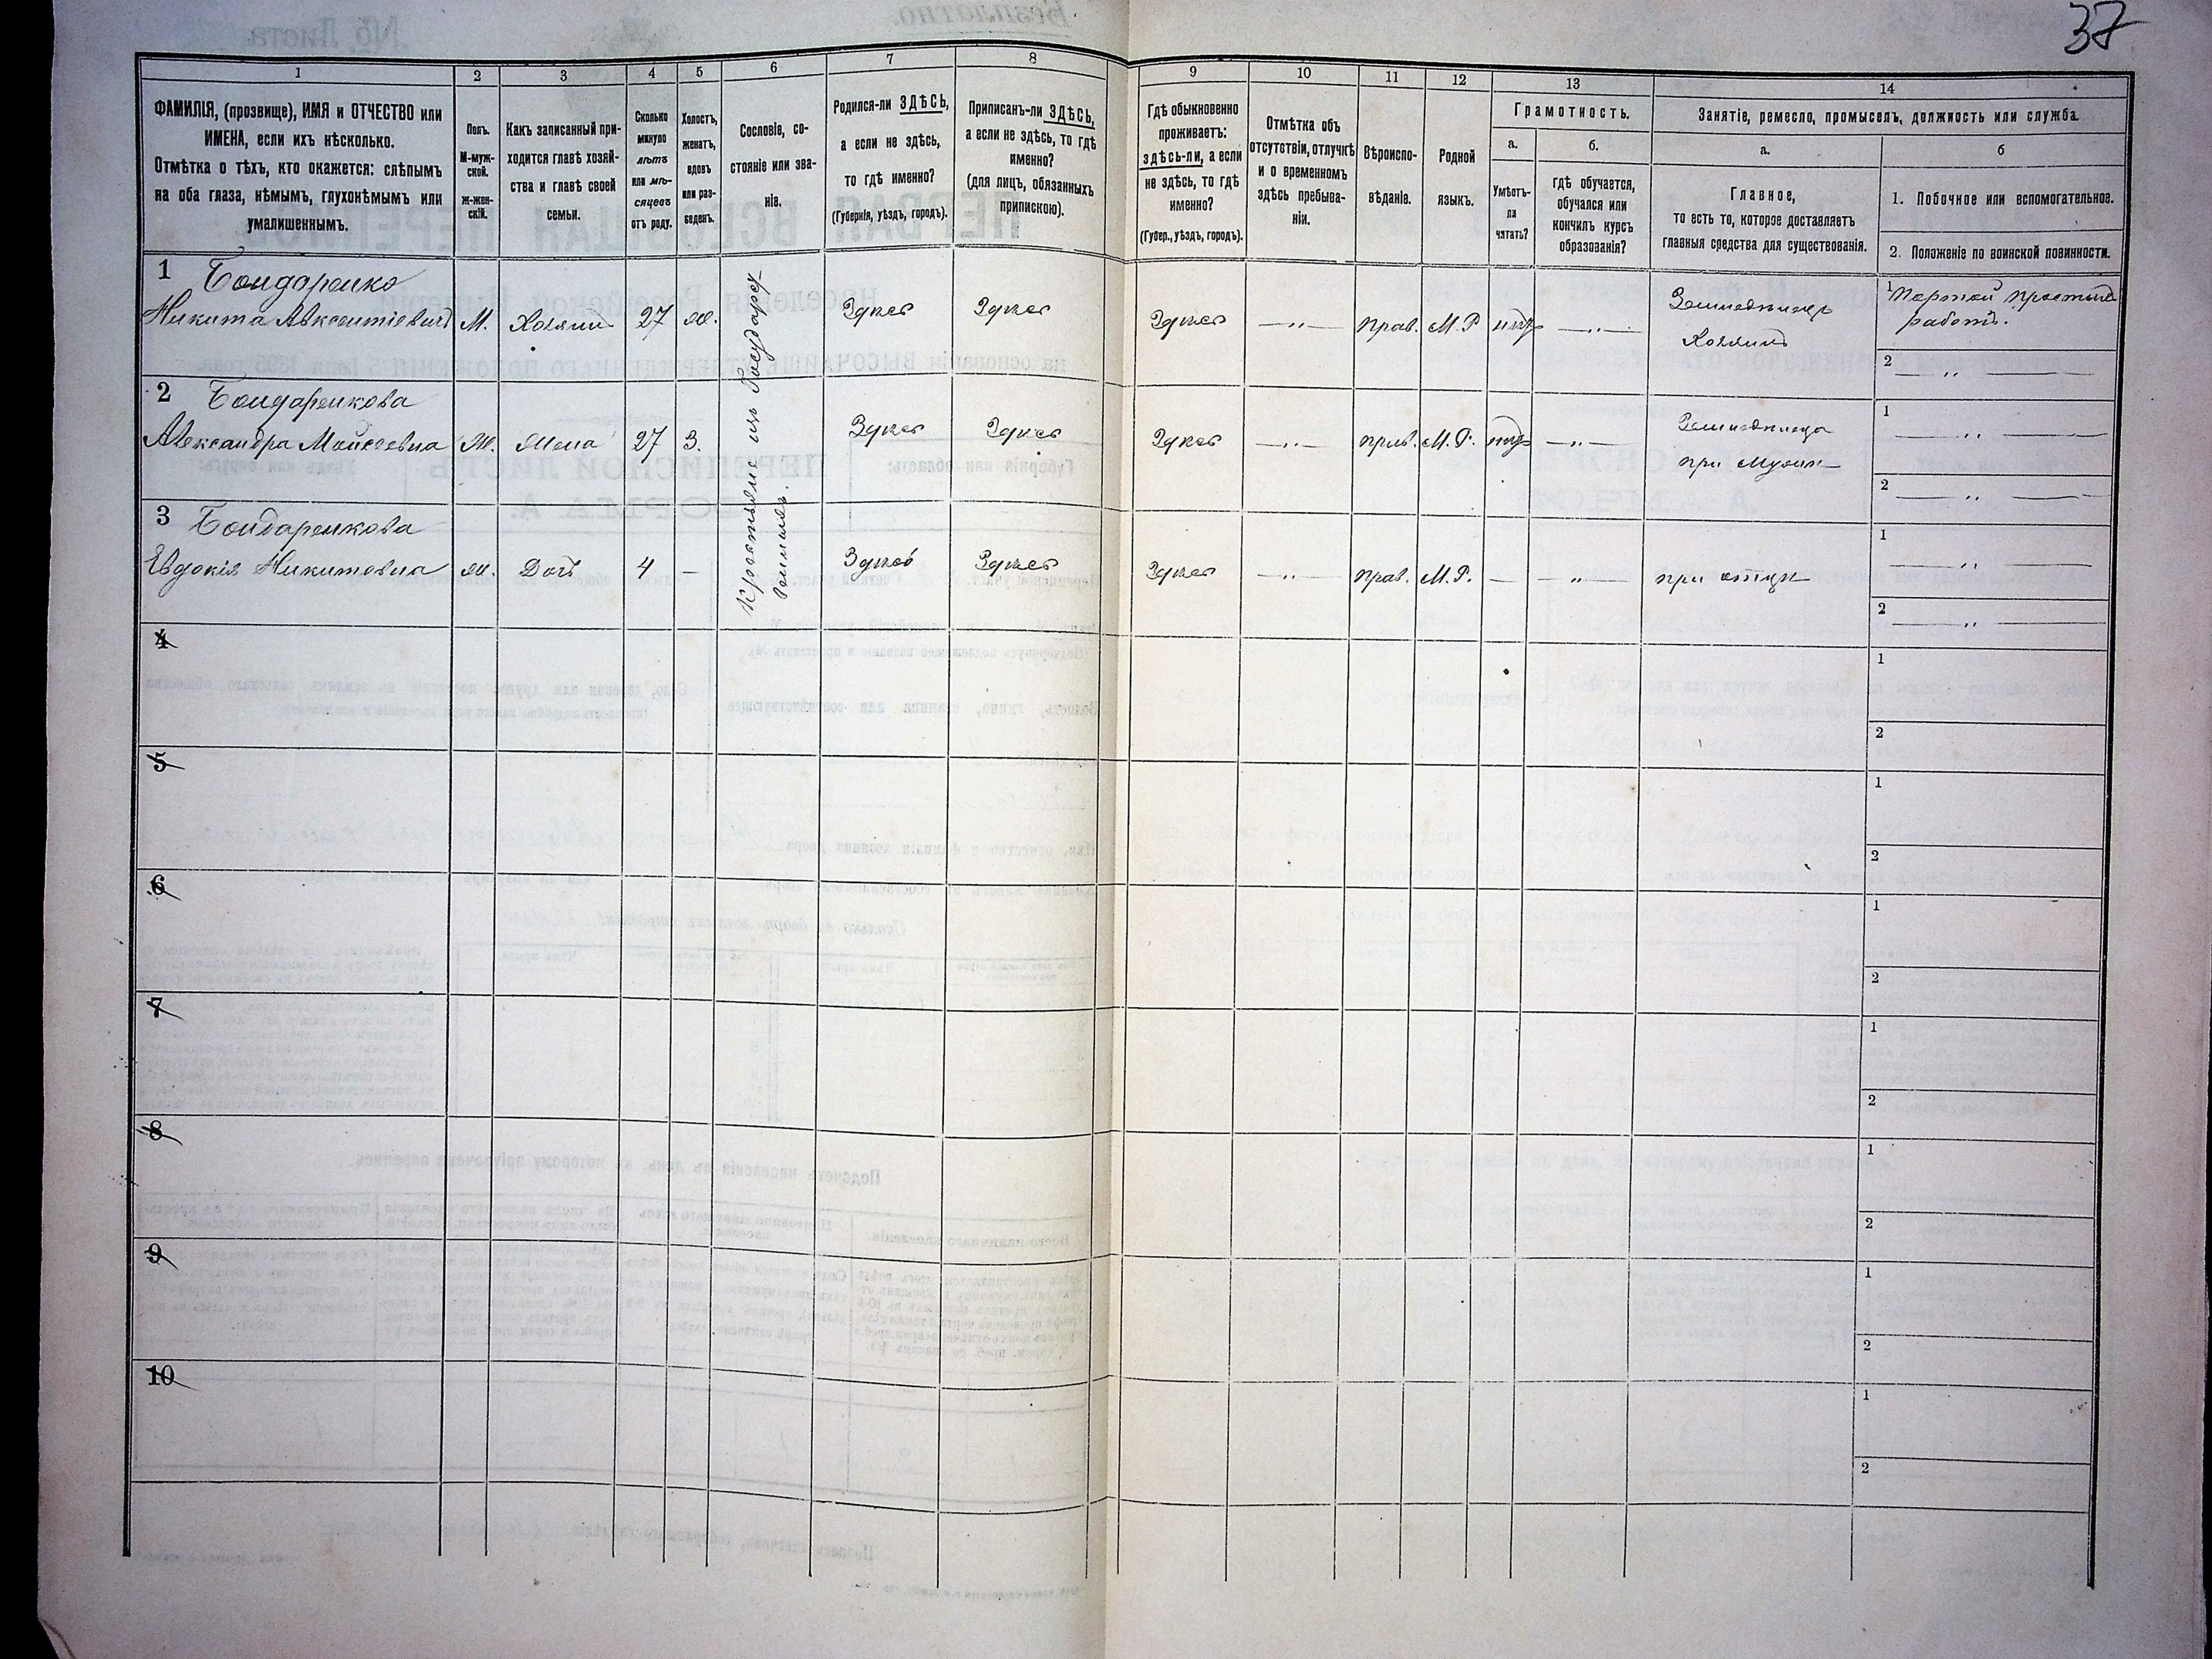 37
1
2
3
4
5
6
7
8
9
10
11
12
13
14
ФАМИЛІЯ, (прозвище), ИМЯ и ОТЧЕСТВО или
ИМЕНА, если ихъ нѣсколько.
Отмѣтка о тѣхъ, кто окажется: слѣпымъ
на оба глаза, нѣмымъ, глухонѣмымъ или
умалишеннымъ.
Полъ.
М-муж-
ской.
ж-жен-
скій.
Какъ записанный при-
ходится главѣ хозяй-
ства и главѣ своей
семьи.
Сколько
минуло
лѣтъ
или мѣ-
сяцевъ
отъ роду.
Холостъ,
женатъ,
вдовъ
или раз-
веденъ.
Сословіе, со-
стояніе или зва-
ніе.
Родился-ли ЗДѢСЬ,
а если не здѣсь,
то гдѣ именно?
(Губернія, уѣздъ, городъ).
Приписанъ-ли ЗДѢСЬ,
а если не здѣсь, то гдѣ
именно?
(для лицъ, обязанныхъ
припискою).
Гдѣ обыкновенно
проживаетъ:
здѣсь-ли, а если
не здѣсь, то гдѣ
именно?
(Губер., уѣздъ, городъ).
Отмѣтка объ
отсутствіи, отлучкѣ
и о временномъ
здѣсь пребыва-
ніи.
Вѣроиспо-
вѣданіе.
Родной
языкъ.
Грамотность.
а.
Умѣетъ-
ли
читать?
б.
гдѣ обучается,
обучался или
кончилъ курсъ
образованія?
Занятіе, ремесло, промыселъ, должность или служба.
а.
Главное,
то есть то, которое доставляетъ
главныя средства для существованія.
б
1. Побочное или вспомогательное.
2. Положеніе по воинской повинности.
1 Бондаренко
Никита Авксентіевичъ М. Хозяинъ 27 ж. Здѣсь Здѣсь Здѣсь —„— прав. М.Р нѣтъ —„— Земледѣлецъ
Хозяинъ
1 Портной простыхъ
работъ.
2 — „ —
Крестьяне изъ Государст.
2 Бондаренкова
Александра Моисеевна Ж. Жена 27 З. Здѣсь Здѣсь Здѣсь —„— прав. М.Р. нѣтъ —„— Земледѣлица
при мужѣ
1 — „ —
2 — „ —
3 Бондаренкова
Евдокія Никитовна Ж. Дочь 4 — Здѣсь Здѣсь Здѣсь —„— прав. М.Р. — „ при отцѣ
1 — „ —
2 — „ —
4
1
2
5
1
2
6
1
2
7
1
2
8
1
2
9
1
2
10
1
2